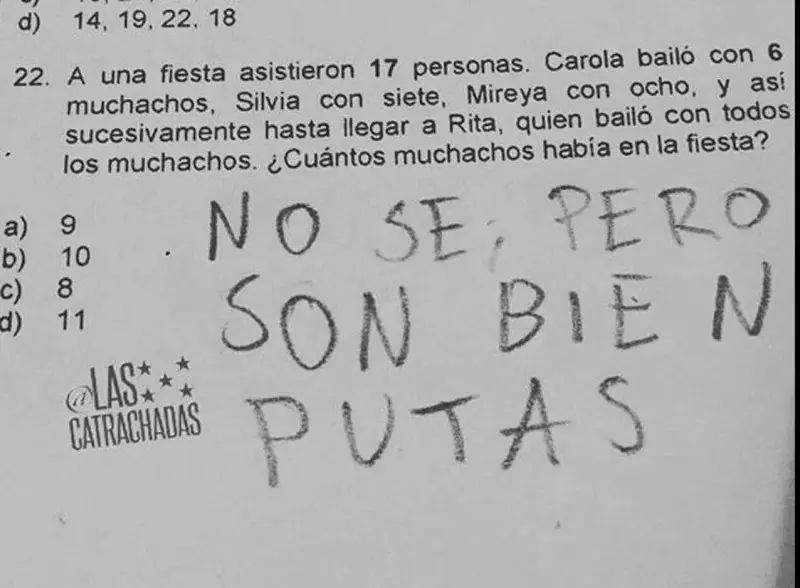 d) 14, 19, 22, 18
22. A una fiesta asistieron 17 personas. Carola bailó con 6
muchachos, Silvia con siete, Mireya con ocho, y así
sucesivamente hasta llegar a Rita, quien bailó con todos
los muchachos. ¿Cuántos muchachos había en la fiesta?
a) 9
b) 10
c) 8
d) 11
NO SE, PERO
SON BIEN
PUTAS
@LAS
CATRACHADAS